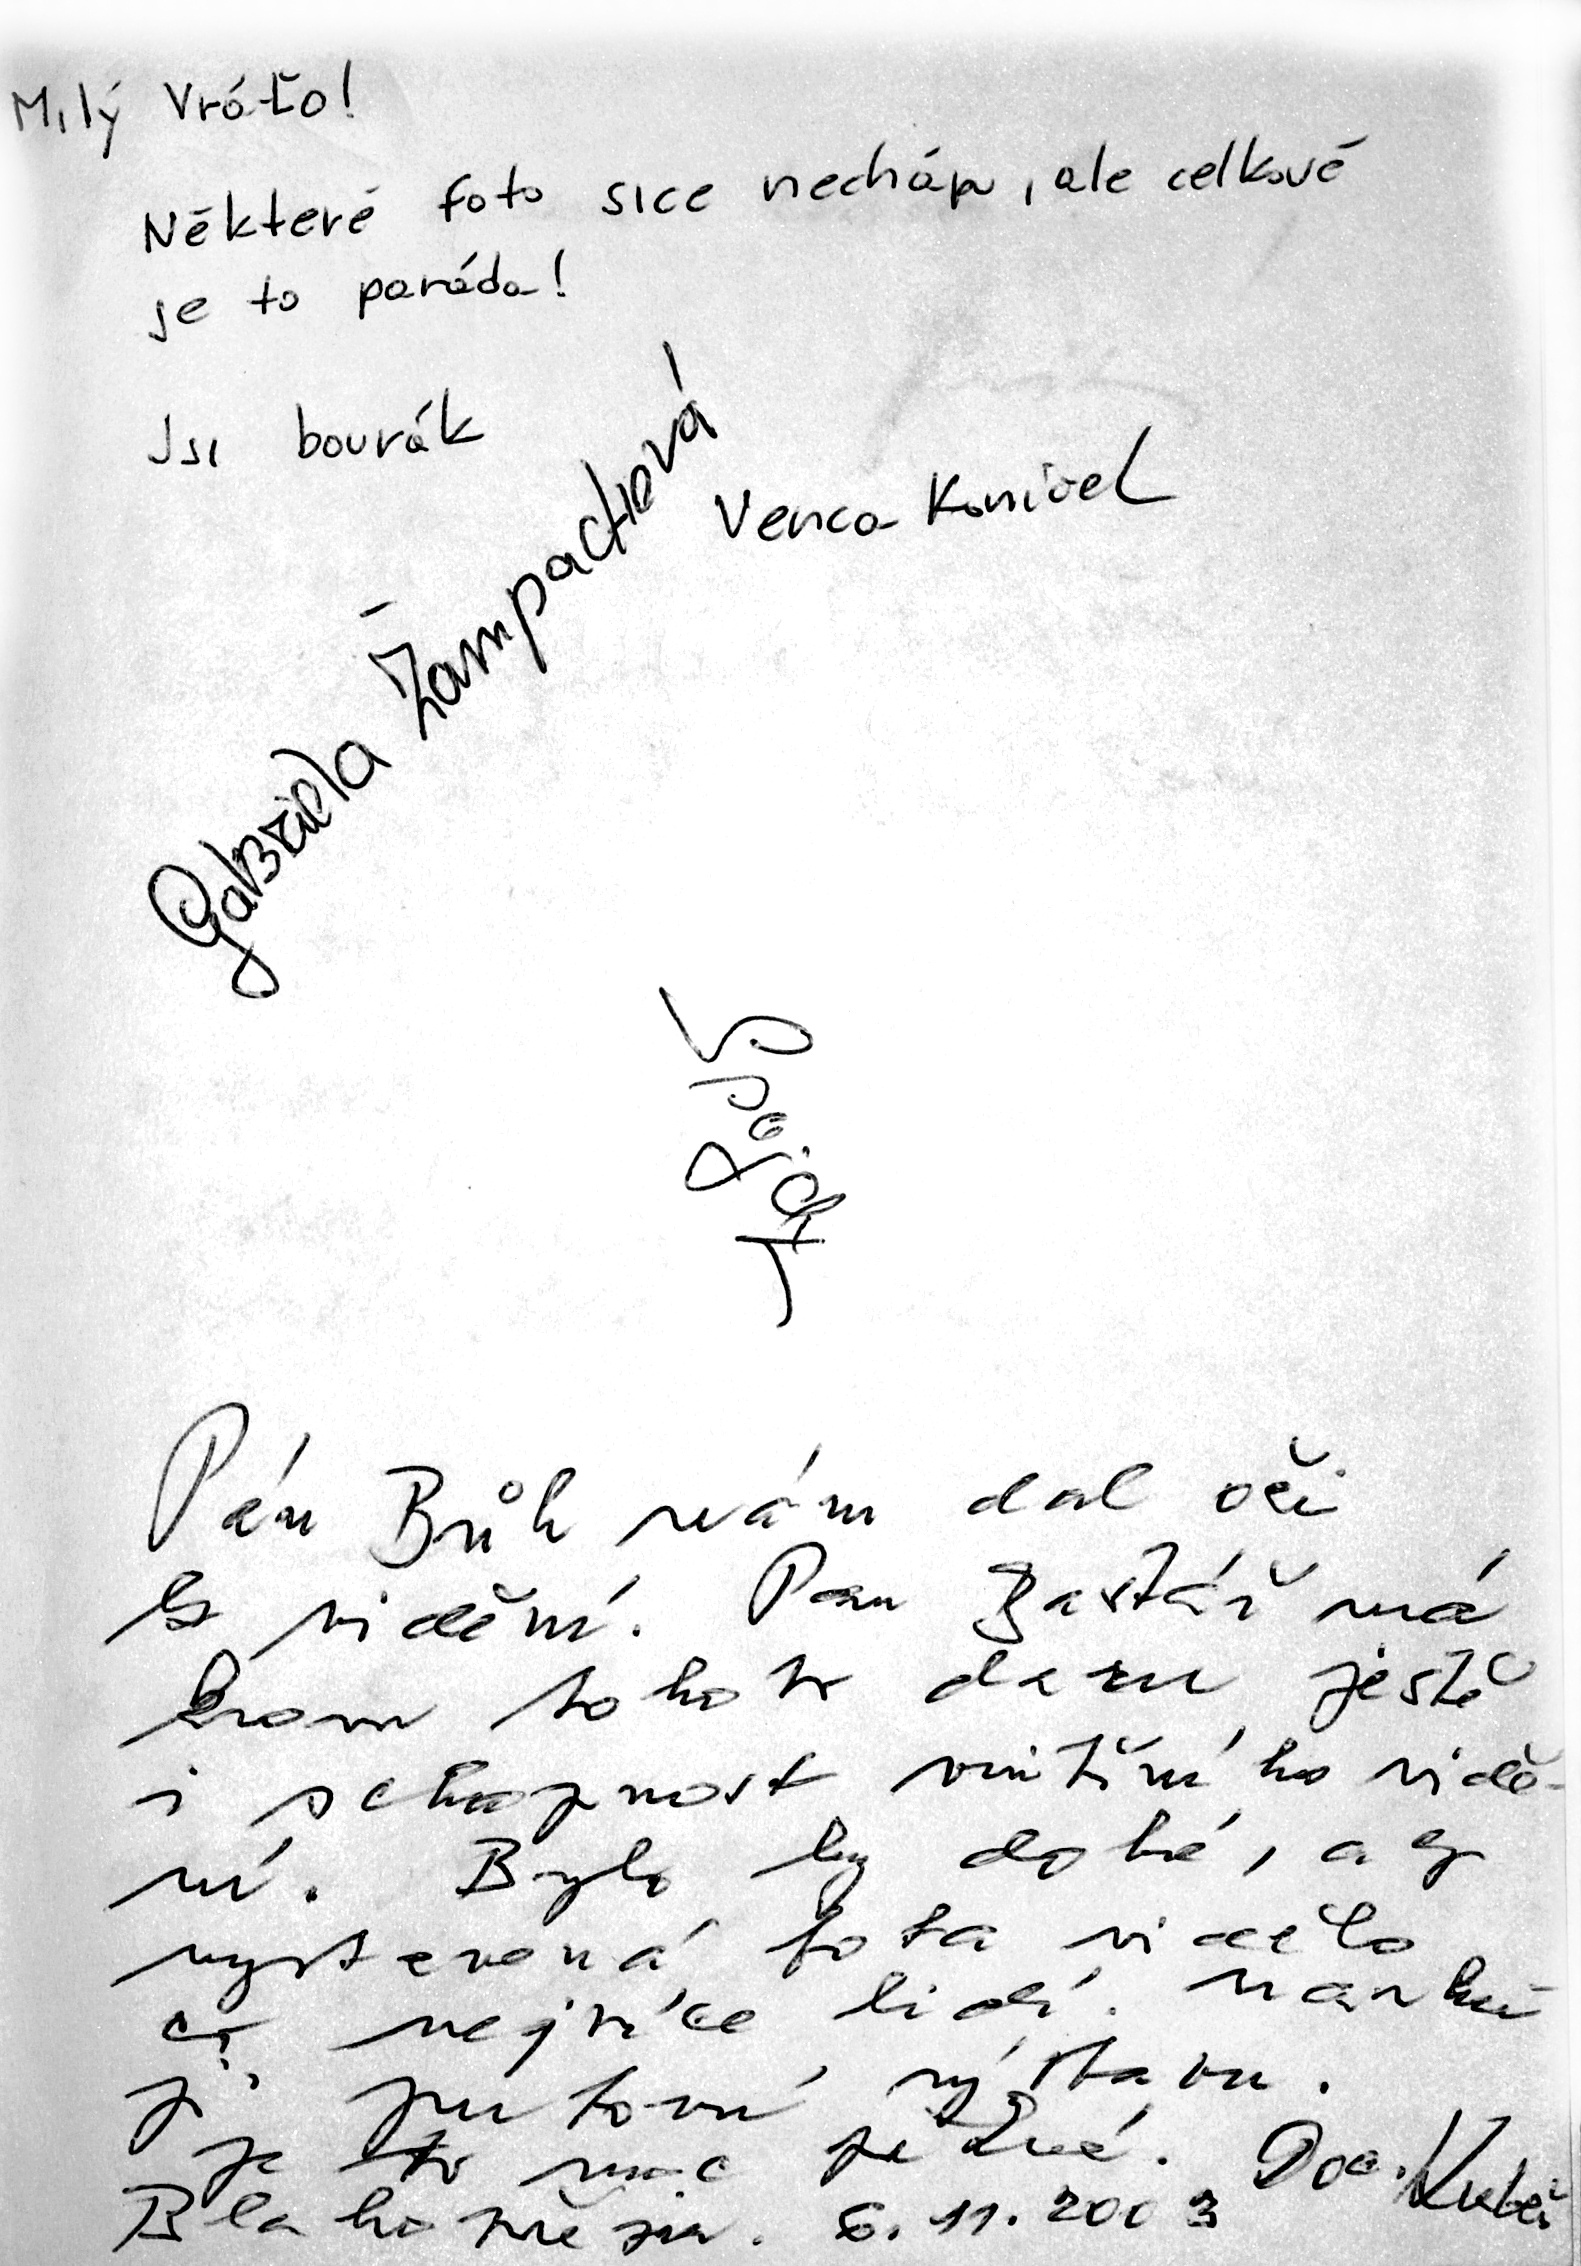 Milý Vráťo!
Některé foto sice nechápu, ale celkově
je to paráda!
Jsi bourák
Venca
Gabriela Žampachová
Pán Bůh nám dal oči
k vidění. Pan Baštář má
krom tohoto daru ještě
i schopnost vnitřního vidě-
ní. Bylo by dobré, aby
vystavená fota vidělo
co nejvíce lidí. Navrhuji
putovní výstavu.
Je to moc pěkné. Doc.
Blahopřeji. 6.11.2003